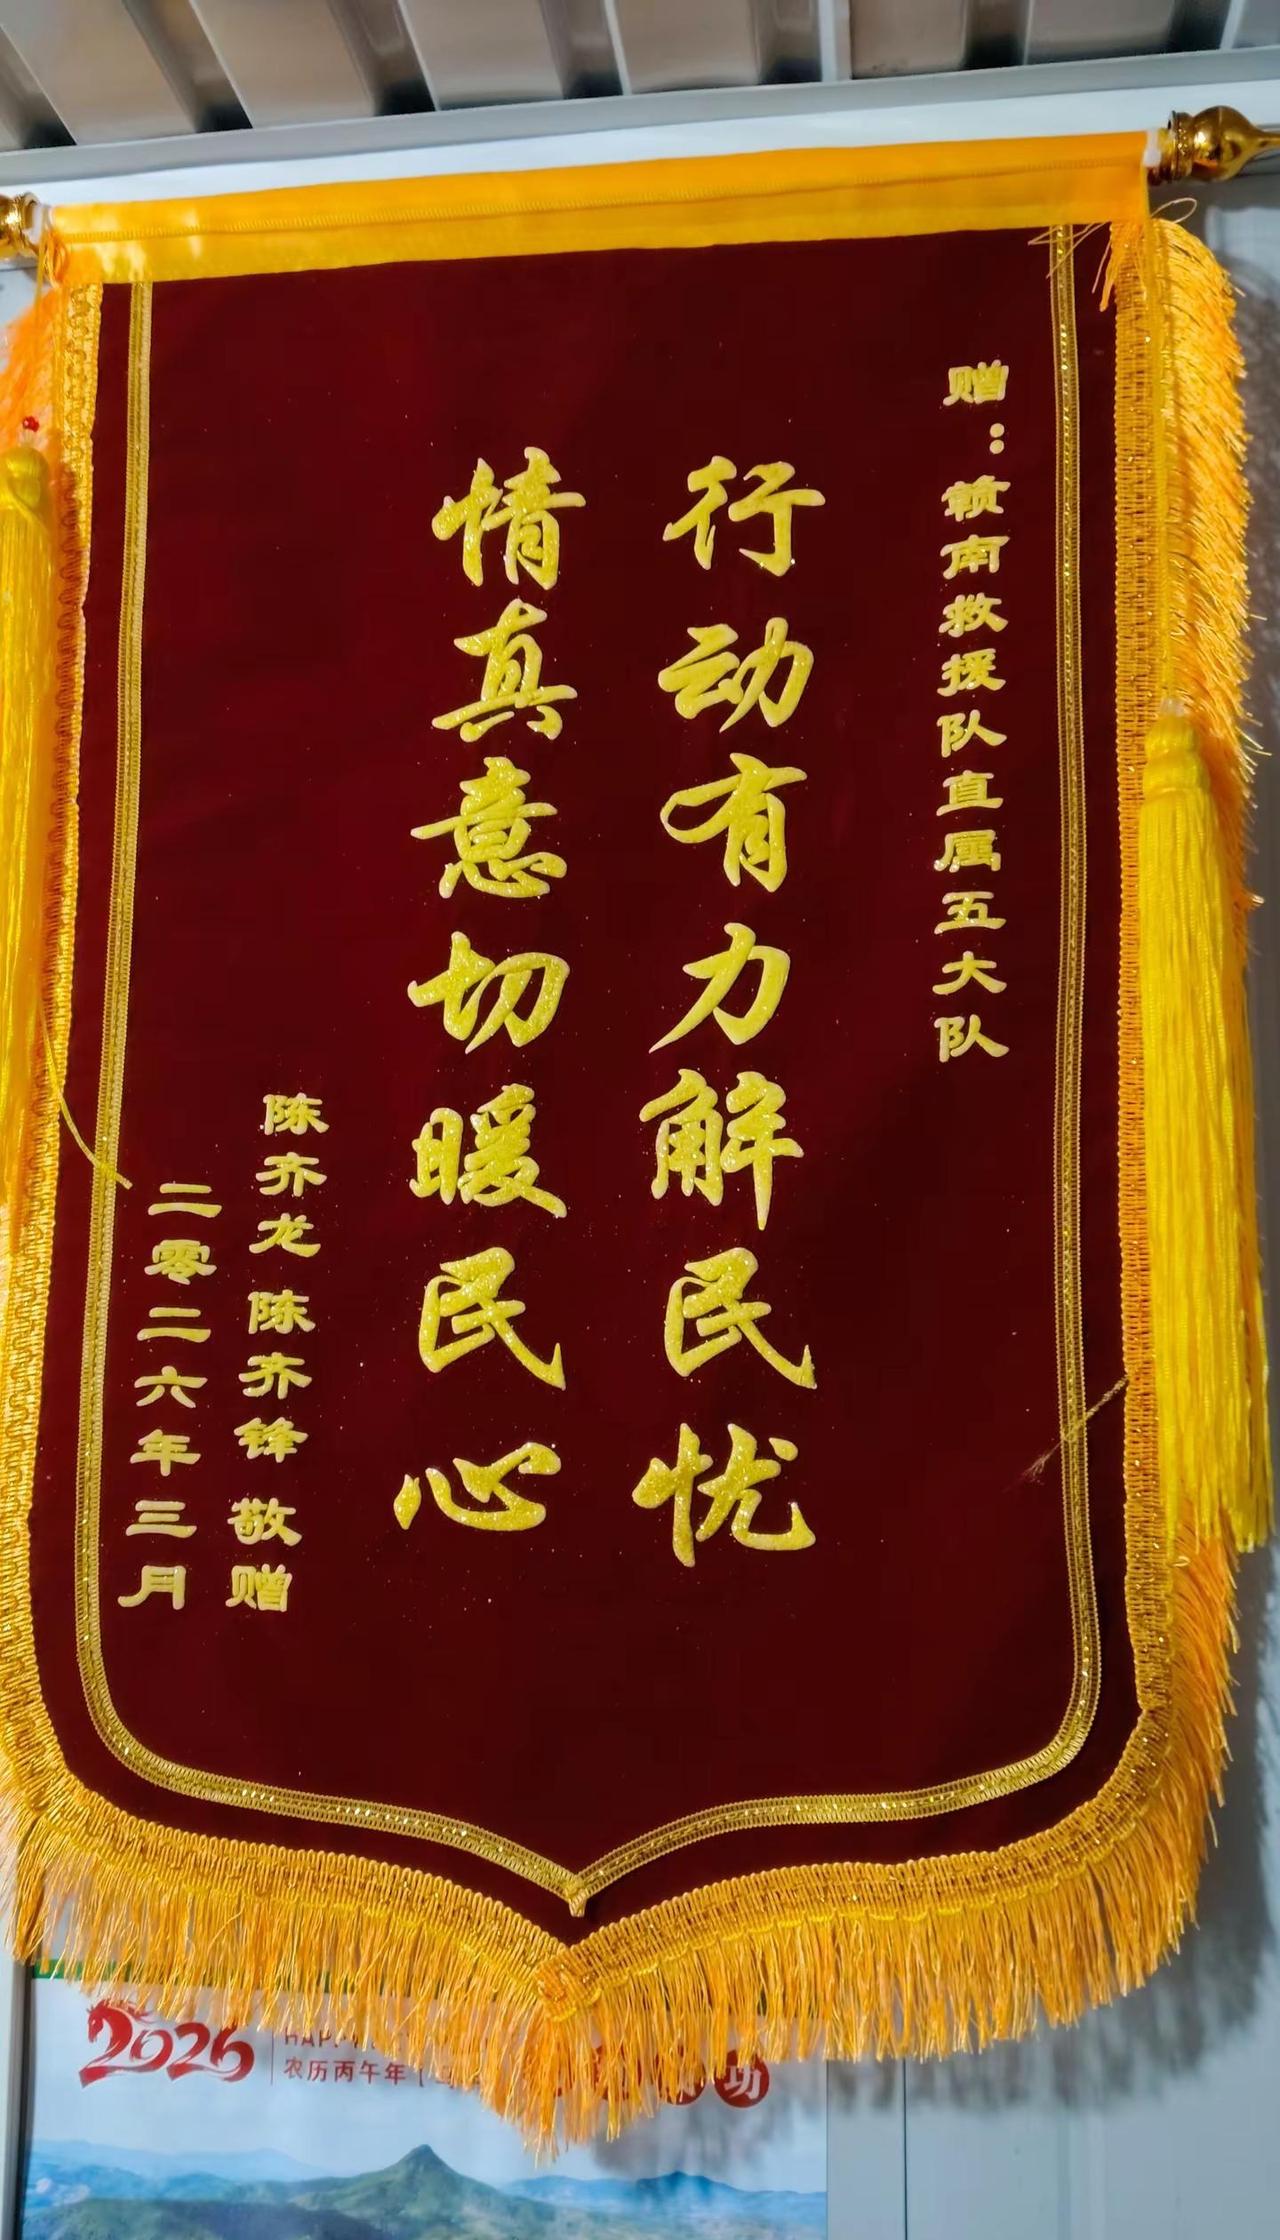 赠：赣南救援队直属五大队
行动有力解民忧
情真意切暖民心
陈齐龙 陈齐锋 敬赠
二零二六年三月
2026
农历丙午年
功